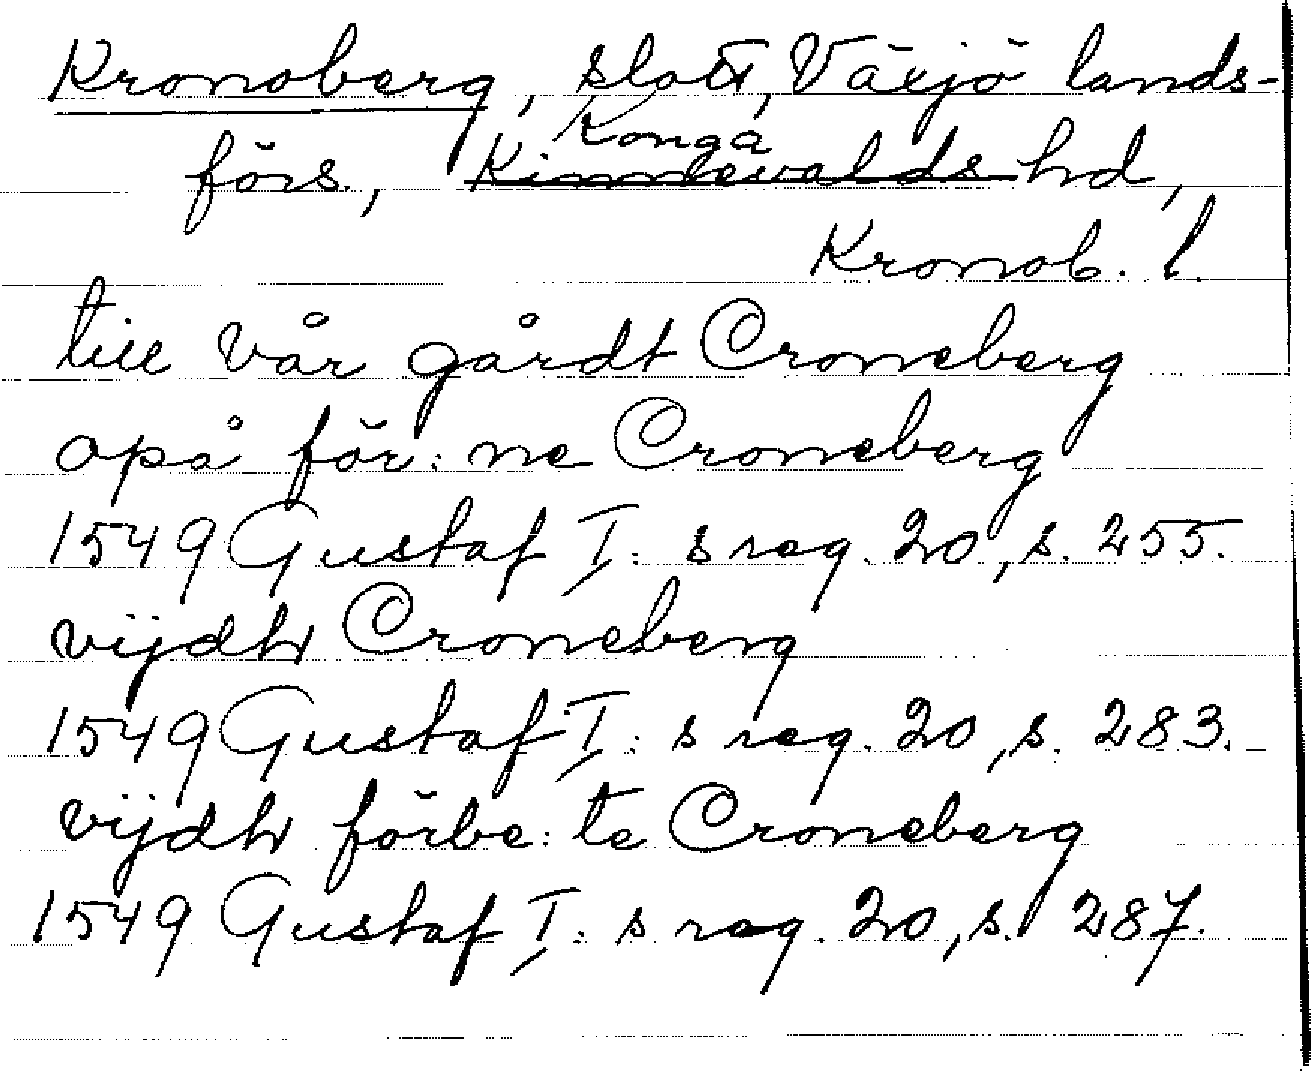 Kronoberg, slott, Växjö lands-
förs., Konga
Kinnevalds hd,
Kronob. l.
till vår gårdt Croneberg
opå för: ne Croneberg
1549 Gustaf I: s reg. 20, s. 255.
vijdh Croneberg
1549 Gustaf I: s reg. 20, s. 283.
vijdh förbe: te Croneberg
1549 Gustaf I: s reg. 20, s. 287.